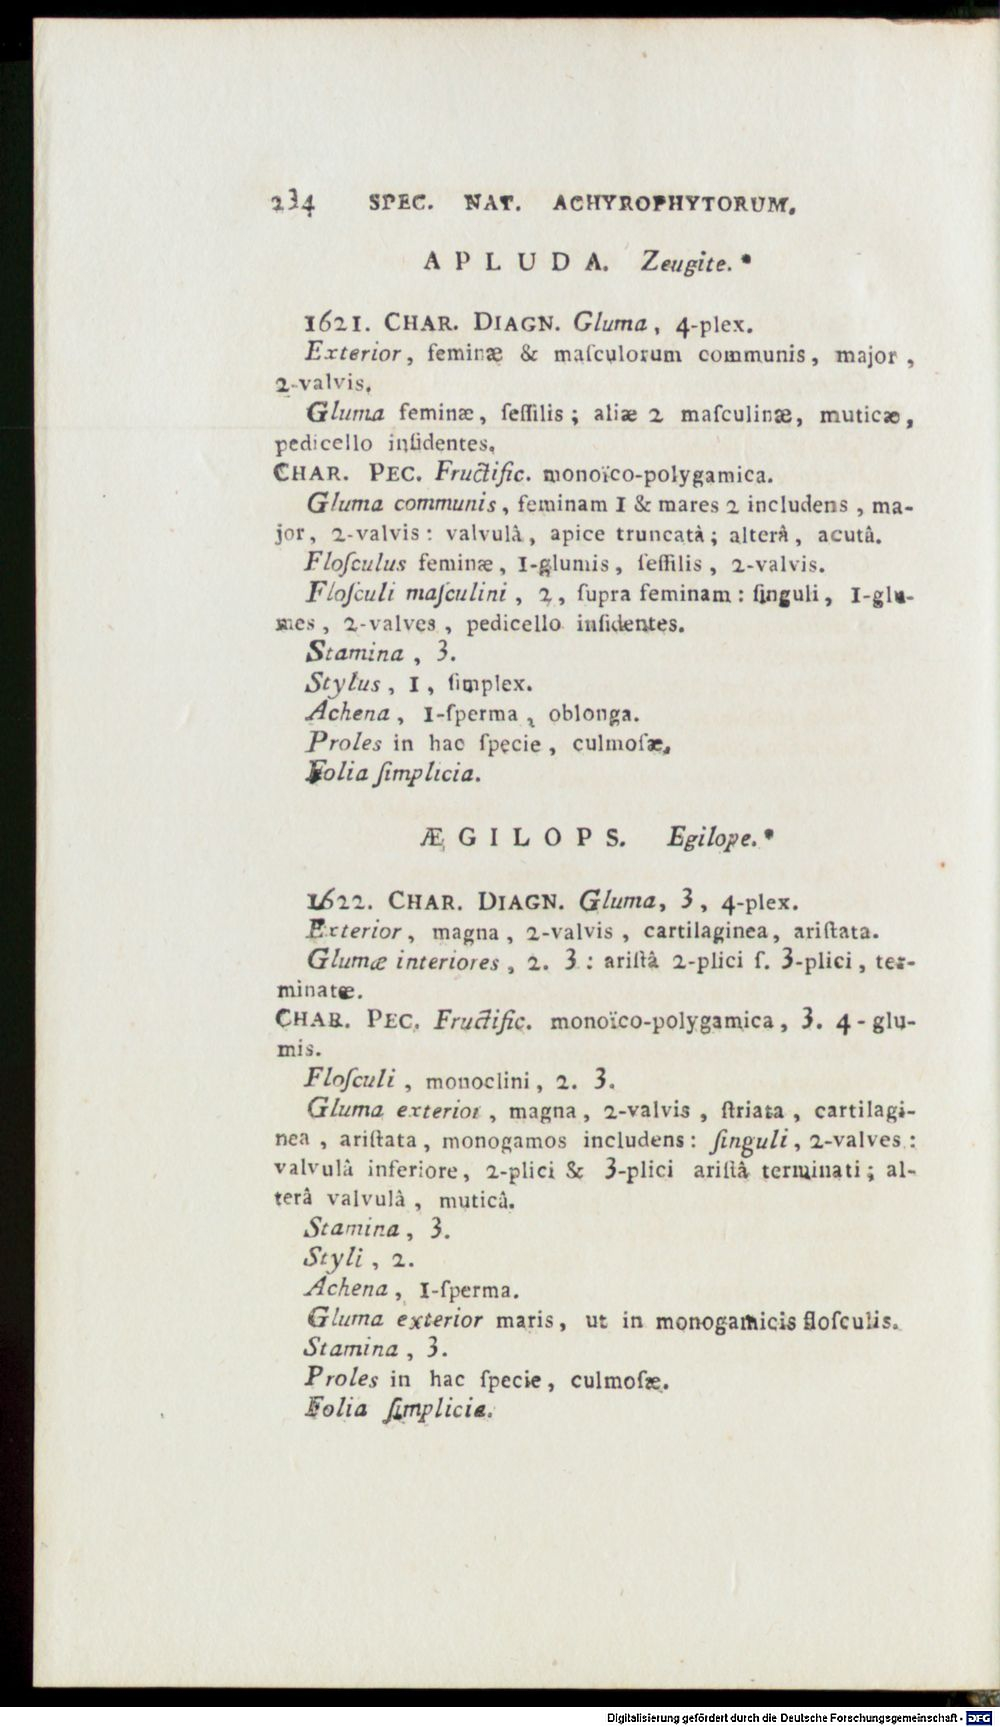 234 SPEC. NAT. ACHYROPHYTORUM.
APLUDA. Zeugite.*
1621. CHAR. DIAGN. Gluma, 4-plex.
Exterior, feminæ & maſculorum communis, major,
2-valvis.
Gluma feminæ, ſeſſilis; aliæ 2 maſculinæ, muticæ,
pedicello inſidentes.
CHAR. PEC. Fructific. monoïco-polygamica.
Gluma communis, feminam 1 & mares 2 includens, ma-
jor, 2-valvis: valvulâ, apice truncatà; alterâ, acutâ.
Floſculus feminæ, 1-glumis, ſeſſilis, 2-valvis.
Floſculi maſculini, 2, ſupra feminam: ſinguli, 1-glu-
mes, 2-valves, pedicello inſidentes.
Stamina, 3.
Stylus, 1, ſimplex.
Achena, 1-ſperma, oblonga.
Proles in hac ſpecie, culmoſæ.
Folia ſimplicia.
ÆGILOPS. Egilope.*
1622. CHAR. DIAGN. Gluma, 3, 4-plex.
Exterior, magna, 2-valvis, cartilaginea, ariſtata.
Glumæ interiores, 2. 3: ariſtâ 2-plici ſ. 3-plici, ter-
minatæ.
CHAR. PEC. Fructific. monoïco-polygamica, 3. 4-glu-
mis.
Floſculi, monoclini, 2. 3.
Gluma exterior, magna, 2-valvis, ſtriata, cartilagi-
nea, ariſtata, monogamos includens: ſinguli, 2-valves:
valvulâ inferiore, 2-plici & 3-plici ariſtâ terminati; al-
terâ valvulâ, muticâ.
Stamina, 3.
Styli, 2.
Achena, 1-ſperma.
Gluma exterior maris, ut in monogamicis floſculis.
Stamina, 3.
Proles in hac ſpecie, culmoſæ.
Folia ſimplicia.
Digitalisierung gefördert durch die Deutsche Forschungsgemeinschaft - DFG